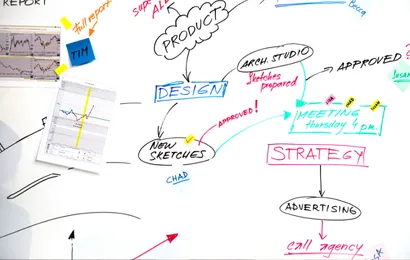 REPORT
full report
TIM
PRODUCT
ARCH. STUDIO
Sketches
prepared
APPROVED
DESIGN
APPROVED!
MEETING
Thursday 4 p.m.
NEW
SKETCHES
CHAD
STRATEGY
ADVERTISING
call agency